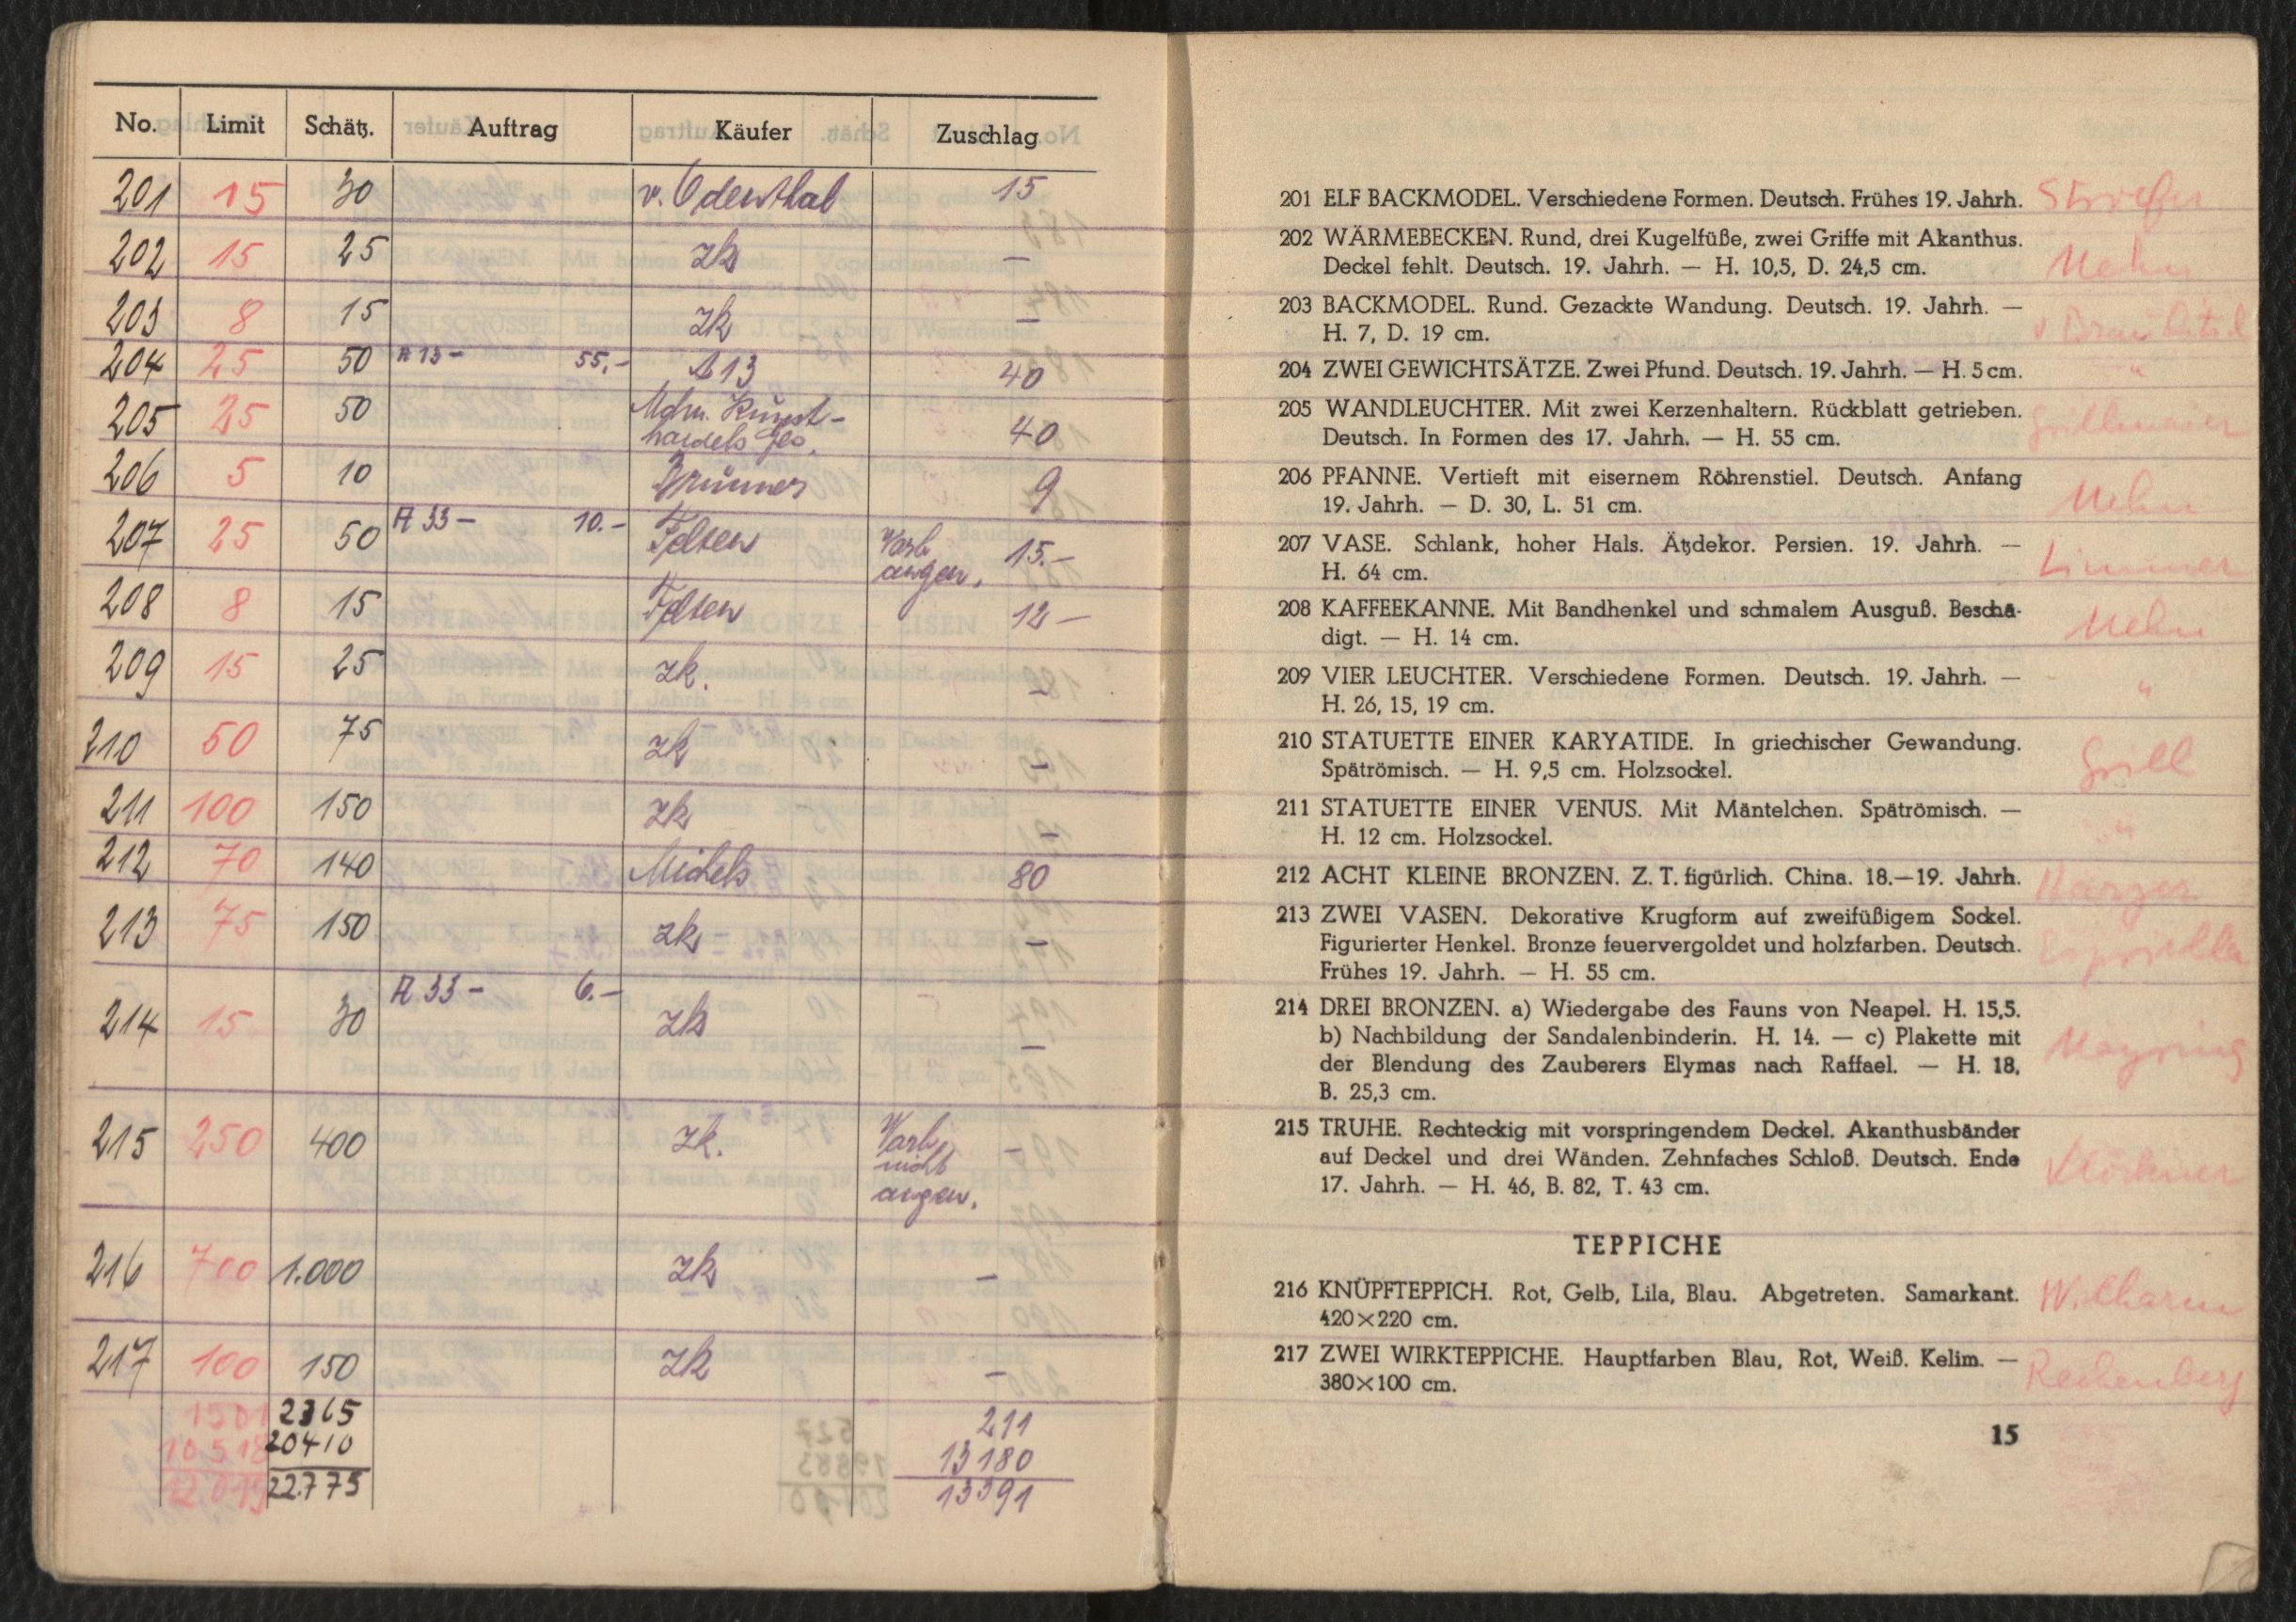 No. Limit Schätz. Auftrag Käufer Zuschlag
201 15 30 v. Odenthal 15
202 15 25 zk –
203 8 15 zk –
204 25 50 A 13 – 55.– A 13 40
205 25 50 Mchn. Kunst-
handels Ges. 40
206 5 10 Brunner 9
207 25 50 A 33 – 10.– Felsen Vorb. 15.–
angen.
208 8 15 Felsen 12 –
209 15 25 zk. –
210 50 75 zk –
211 100 150 zk –
212 70 140 Michels 80
213 75 150 zk –
214 15 30 A 33 – 6.– zk –
215 250 400 zk. Vorb. –
nicht
angen.
216 700 1.000 zk –
217 100 150 zk –
1501 2365 211
10518 20410 13180
12019 22.775 13391
201 ELF BACKMODEL. Verschiedene Formen. Deutsch. Frühes 19. Jahrh.
202 WÄRMEBECKEN. Rund, drei Kugelfüße, zwei Griffe mit Akanthus.
Deckel fehlt. Deutsch. 19. Jahrh. — H. 10,5, D. 24,5 cm.
203 BACKMODEL. Rund. Gezackte Wandung. Deutsch. 19. Jahrh. —
H. 7, D. 19 cm.
204 ZWEI GEWICHTSÄTZE. Zwei Pfund. Deutsch. 19. Jahrh. — H. 5 cm. "
205 WANDLEUCHTER. Mit zwei Kerzenhaltern. Rückblatt getrieben.
Deutsch. In Formen des 17. Jahrh. — H. 55 cm.
206 PFANNE. Vertieft mit eisernem Röhrenstiel. Deutsch. Anfang
19. Jahrh. — D. 30, L. 51 cm.
207 VASE. Schlank, hoher Hals. Ätzdekor. Persien. 19. Jahrh. — Limmer
H. 64 cm.
208 KAFFEEKANNE. Mit Bandhenkel und schmalem Ausguß. Beschä-
digt. — H. 14 cm.
209 VIER LEUCHTER. Verschiedene Formen. Deutsch. 19. Jahrh. — "
H. 26, 15, 19 cm.
210 STATUETTE EINER KARYATIDE. In griechischer Gewandung. Grill
Spätrömisch. — H. 9,5 cm. Holzsockel.
211 STATUETTE EINER VENUS. Mit Mäntelchen. Spätrömisch. — "
H. 12 cm. Holzsockel.
212 ACHT KLEINE BRONZEN. Z. T. figürlich. China. 18.—19. Jahrh.
213 ZWEI VASEN. Dekorative Krugform auf zweifüßigem Sockel.
Figurierter Henkel. Bronze feuervergoldet und holzfarben. Deutsch.
Frühes 19. Jahrh. — H. 55 cm.
214 DREI BRONZEN. a) Wiedergabe des Fauns von Neapel. H. 15,5.
b) Nachbildung der Sandalenbinderin. H. 14. — c) Plakette mit
der Blendung des Zauberers Elymas nach Raffael. — H. 18,
B. 25,3 cm.
215 TRUHE. Rechteckig mit vorspringendem Deckel. Akanthusbänder
auf Deckel und drei Wänden. Zehnfaches Schloß. Deutsch. Ende
17. Jahrh. — H. 46, B. 82, T. 43 cm.
TEPPICHE
216 KNÜPFTEPPICH. Rot, Gelb, Lila, Blau. Abgetreten. Samarkant. Wilharm
420×220 cm.
217 ZWEI WIRKTEPPICHE. Hauptfarben Blau, Rot, Weiß. Kelim. — Rechenberg
380×100 cm.
15